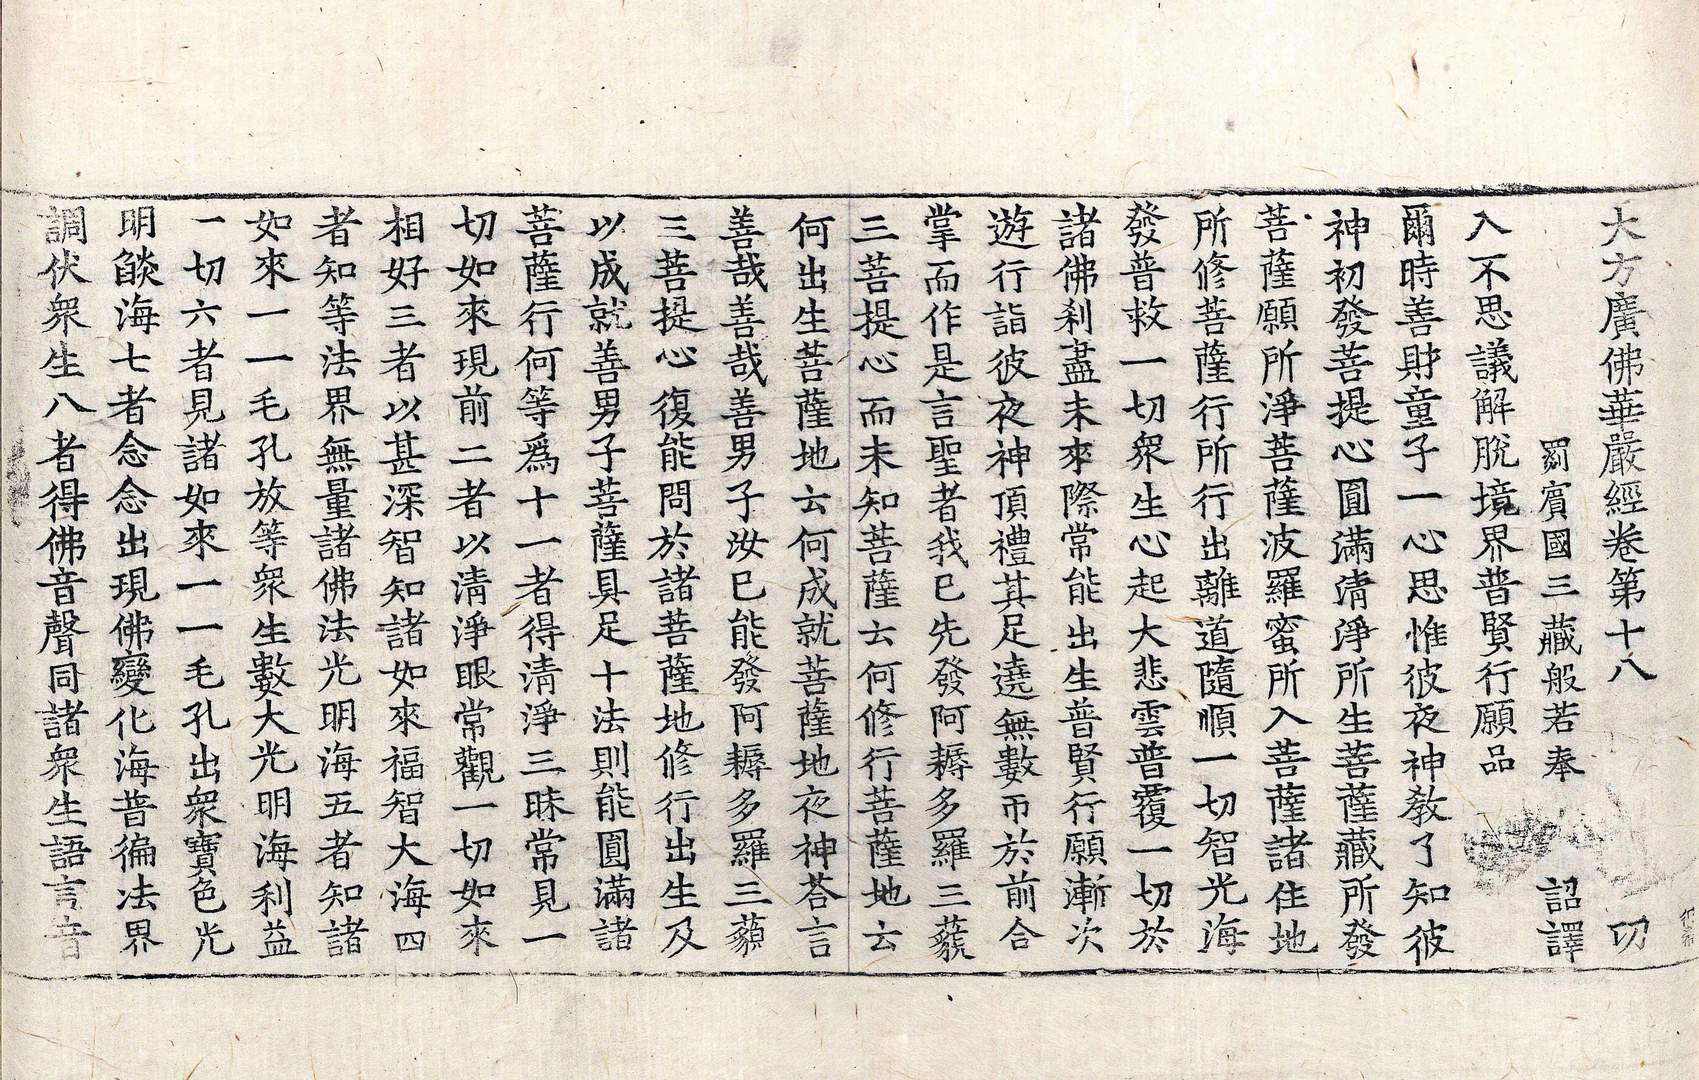 大方廣佛華嚴經卷第十八 㓛
罽賓國三藏般若奉 詔譯
入不思議解脫境界普賢行願品
爾時善財童子一心思惟彼夜神教了知彼
神初發菩提心圓滿淸淨所生菩薩藏所發
菩薩願所淨菩薩波羅蜜所入菩薩諸住地
所修菩薩行所行出離道隨順一切智光海
發普救一切衆生心起大悲雲普覆一切於
諸佛刹盡未來際常能出生普賢行願漸次
遊行詣彼夜神頂禮其足遶無數帀於前合
掌而作是言聖者我已先發阿耨多羅三藐
三菩提心而未知菩薩云何修行菩薩地云
何出生菩薩地云何成就菩薩地夜神荅言
善哉善哉善男子汝已能發阿耨多羅三藐
三菩提心復能問於諸菩薩地修行出生及
以成就善男子菩薩具足十法則能圓滿諸
菩薩行何等爲十一者得淸淨三昧常見一
切如來現前二者以淸淨眼常觀一切如來
相好三者以甚深智知諸如來福智大海四
者知等法界無量諸佛法光明海五者知諸
如來一一毛孔放等衆生數大光明海利益
一切六者見諸如來一一毛孔出衆寶色光
明燄海七者念念出現佛變化海普徧法界
調伏衆生八者得佛音聲同諸衆生語言音